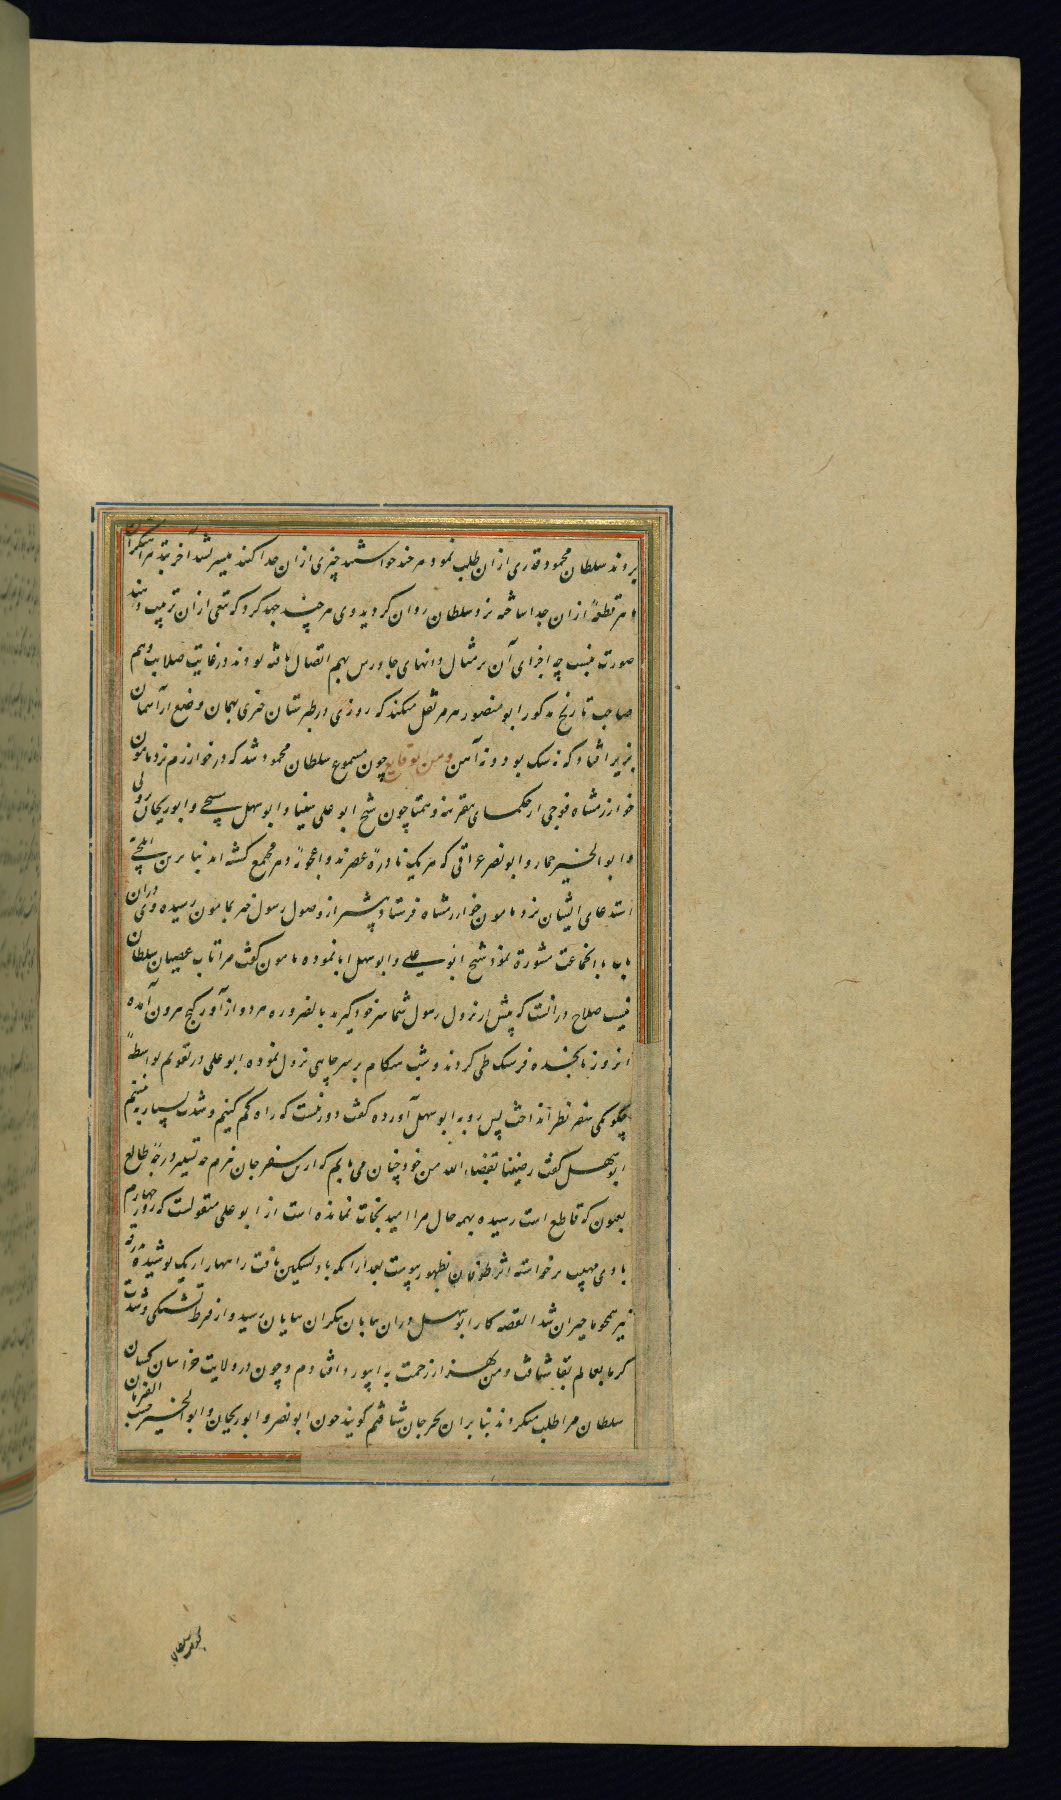 بروند سلطان محمود قدری ازان طلب نمود هر چند خواستند چیزی ازان جدا کنند میسر نشد آخر
هر قطعهٔ ازان جدا ساخته نزد سلطان روان کردید وی هر چند جهد کرد که تیغی ازان ترتیب دهند
صورت نبست چه اجزای آن بر مثال دانهای جاورس بهم اتصال یافته بودند در غایت صلابت وهم
صاحب تاریخ مذکور ابو منصور هرمز نقل میکند که روزی در طبرستان چیزی بهمان وضع از آسمان
بزیر افتاد که نه سنک بود و نه آهن ومن الوقایع چون مسموع سلطان محمود شد که در خوارزم نزد مامون
خوارزمشاه فوجی از حکمای بیقرینه و همتا چون شیخ ابو علی سینا و ابو سهل مسیحی و ابو ریحان بیرونی
و ابو الخیر خمار و ابو نصر عراقی که هر یک نادرهٔ عصرند و اعجوبهٔ دهر مجمع کشته اند بنا برین ایلچی
استدعای ایشان نزد مامون خوارزمشاه فرستاد پیشتر از وصول رسول خبر بمامون رسیده وی دران
باب با انجماعت مشورة نمود شیخ ابو علی و ابو سهل ابا نموده مامون کفت مرا تاب عصیان سلطان
نیست صلاح درانست که پیش از نزول رسول شما سر خود کیرید بالضروره هر دو از آورکنج بیرون آمده
انروز پانجده فرسنک طی کردند و شب هنکام بر سر چاهی نزول نموده ابو علی در تقویم بواسطهٔ
چکونکی سفر نظر انداخت پس رو به ابو سهل آورده کفت دور نیست که راه کم کنیم و شدت بسیار بینیم
ابو سهل کفت رضینا بقضاء الله من خود چنان می یابم که ازین سفر جان نبرم چه تسییر درجهٔ طالع
بعیون که قاطع است رسیده بهمه حال مرا امید نجات نمانده است از ابو علی منقولست که روز چهارم
بادی مهیب برخواسته اثر طوفان بظهور پیوست بعد از انکه باد تسکین یافت راهها را ریک پوشیده بدرقه
نیز همچو ما حیران شد القصه کار ابو سهل دران بیابان بیکران بپایان رسید و از فرط تشنکی و شدت
کرما بعالم بقا شتافت و من بهزار زحمت به ابیورد افتادم و چون در ولایت خراسان کسان
سلطان مرا طلب میکردند بنا بران بجرجان شتافتم کویند چون ابو نصر و ابو ریحان و ابو الخیر حسب الفرمان